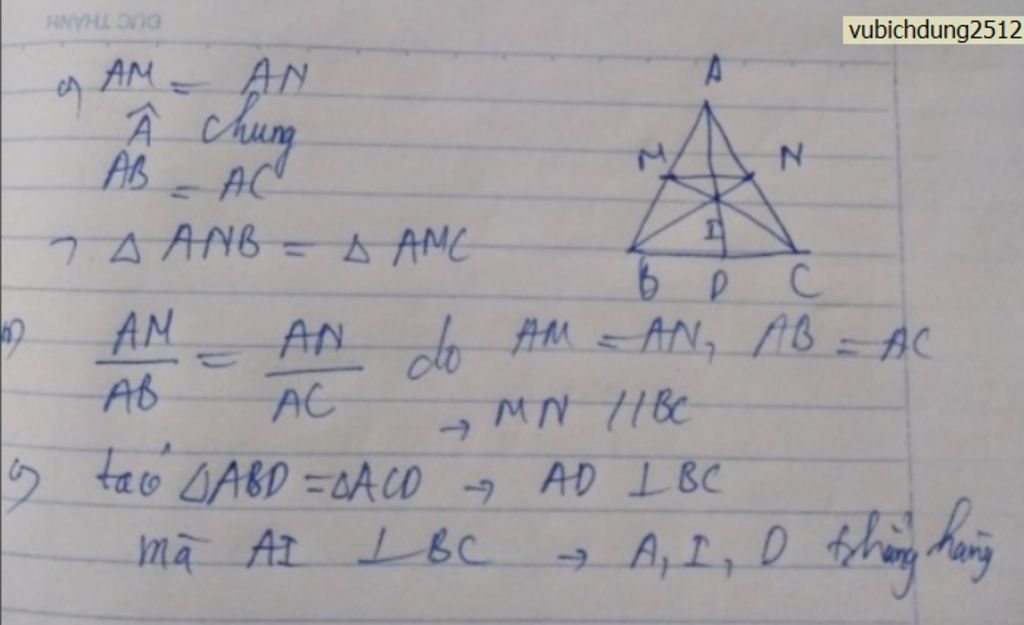 ĐỨC THÀNH
vubichdung2512
a) AM = AN
Â chung
AB = AC
→ Δ ANB = Δ AMC
A
M N
I
B D C
b) AM/AB = AN/AC do AM = AN, AB = AC
→ MN // BC
c) ta có ΔABD = ΔACD → AD ⊥ BC
mà AI ⊥ BC → A, I, D thẳng hàng